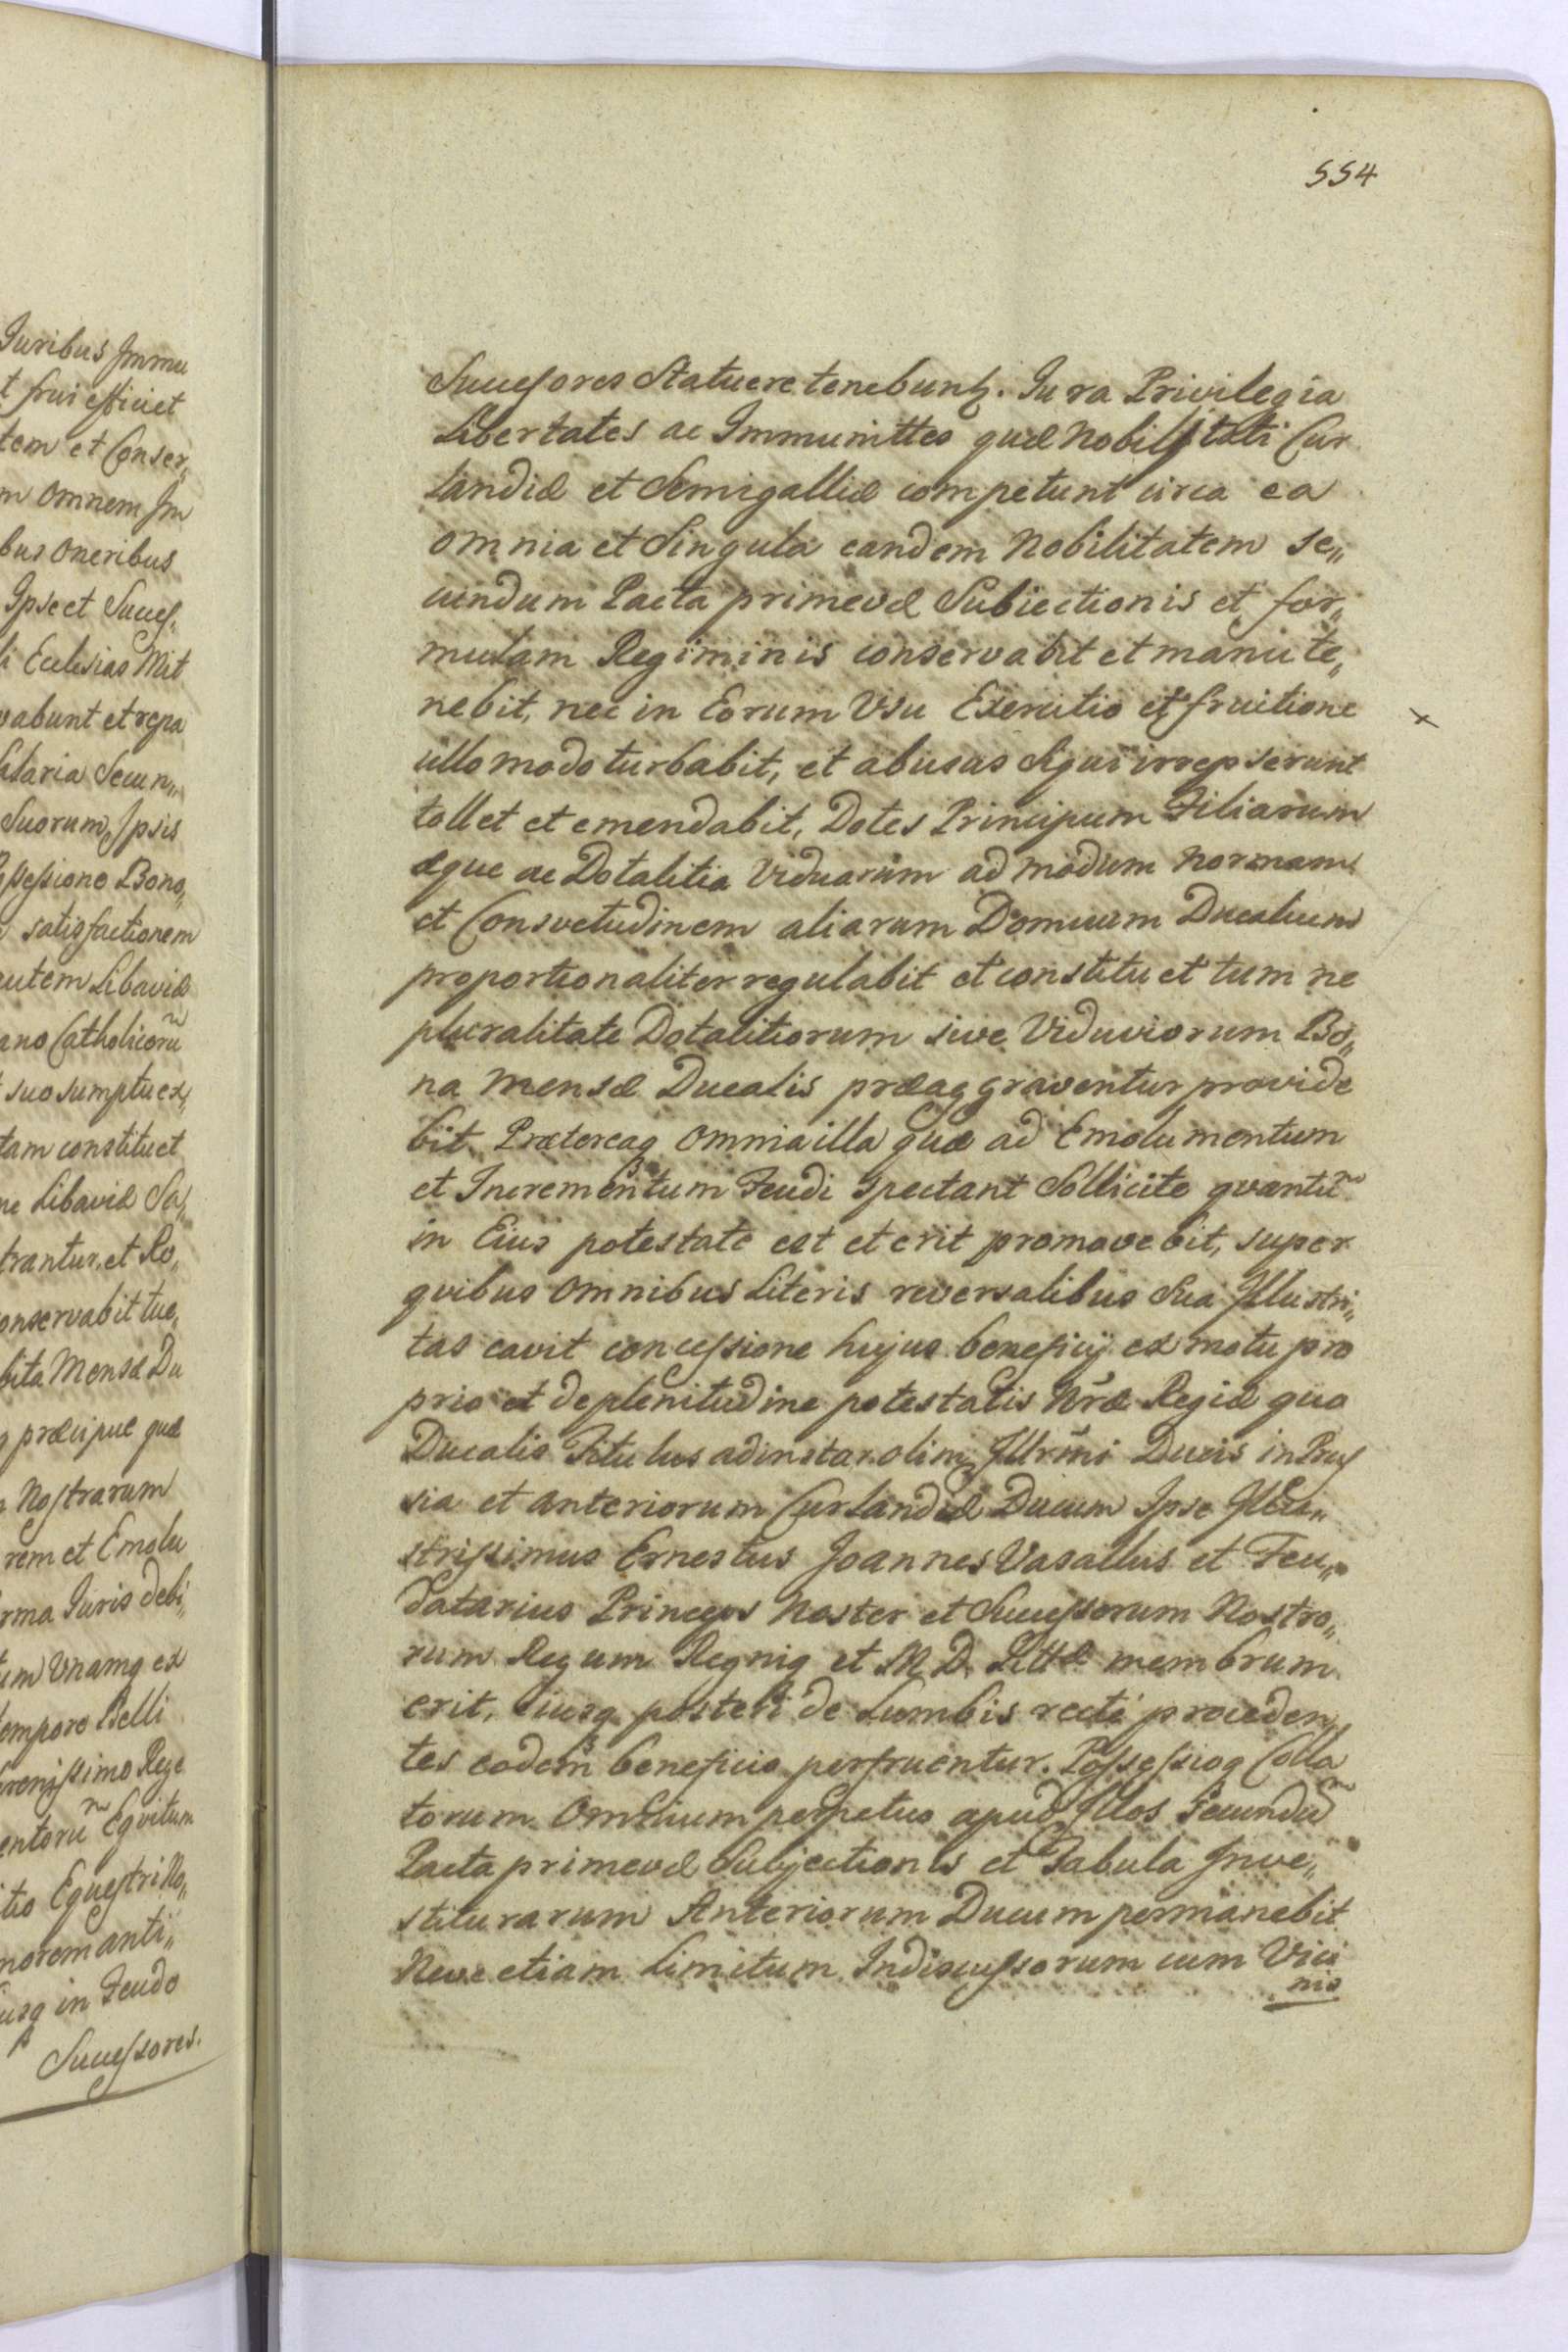 Juribus Immu
t frui efficiet
tem et Conser„
m omnem Im
bus oneribus
Ipse et Succes„
i Ecclesias Mit
vabunt et repa
alaria Secun„
Suorum, Ipsis
ssessione Bono„
satisfactionem
autem Libaviæ
ano Catholicorũ
suo sumptu ex„
tam constituet
ne Libaviæ Sa„
trantur, et Ro„
onservabit tue„
bita Mensæ Du
præcipue quæ
Nostrarum
rem et Emolu
rma Juris debi„
um Unamq ex
tempore Belli
renissimo Rege
entorũ Eqvitum
tio Equestri No„
morem anti„
usq in Feudo
Successores.
554
Successores Statuere tenebunt. Jura Privilegia
Libertates ac Immunittes quæ Nobilitati Cur
landiæ et Semigalliæ competunt circa ea
omnia et Singula eandem Nobilitatem se„
cundum Pacta primevæ Subiectionis et for„
mulam Regiminis conservabit et manute„
nebit, nec in Eorum Usu Exercitio et fruitione
ullo modo turbabit, et abusus siqui irrepserunt
tollet et emendabit, Dotes Principum Filiarum
æque ac Dotalitia Viduarum ad modum Normam
et Consvetudinem aliarum Domuum Ducalium
proportionaliter regulabit et constituet tum ne
pluralitate Dotalitiorum sive Viduviorum Bo„
na Mensæ Ducalis præaggraventur provide
bit. Prætereaq omnia illa quæ ad Emolumentum
et Incrementum Feudi spectant Sollicite qvantũ
in Eius potestate est et erit promovebit, super
qvibus omnibus Literis reversalibus Sua Illustri„
tas cavit concessione hujus beneficij ex motu pro
prio et de plenitudine potestatis Nræ Regiæ quo
Ducalis Titulus ad instar olim Illrmi Ducis in Prus
sia et anteriorum Curlandiæ Ducum Ipse Illu„
strissimus Ernestus Joannes Vasallus et Feu„
datarius Princeps Noster et Successorum Nostro„
rum Regum Regniq et M. D. Littæ membrum
erit, Eiusq posteri de Lumbis recte proceden„
tes eodem beneficio perfruentur. Possessioq Colla
torum Omnium perpetuo apud Illos Secundũ
Pacta primevæ Subjectionis et Tabula Inve„
stiturarum Anteriorum Ducum permanebit
Neve etiam Limitum Indiscussorum cum Vici
nis